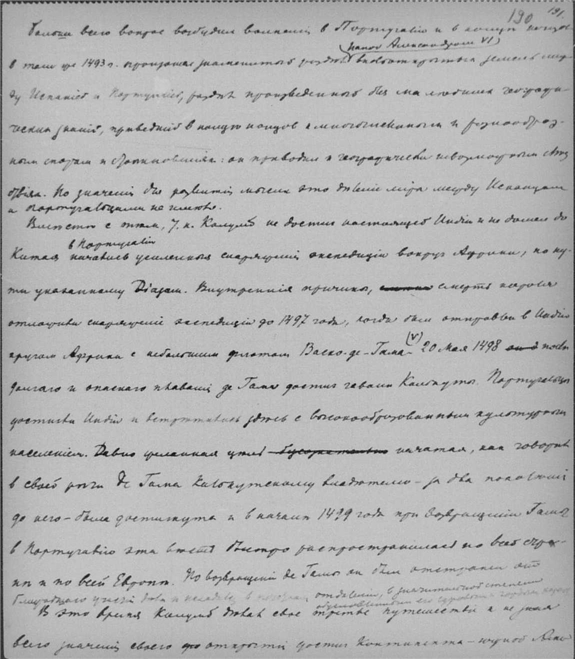 190 191
Больше всего вопрос возбудил волнений в Португалии и в конце концов
папой Александром VI
в том же 1493 г. произошел знаменитый раздел вновь открытых земель меж
ду Испанией и Португалией, раздел произведенный без малейших географи
ческих знаний, приведший в конце концов к многочисленным и разнообраз
ным спорам и столкновениям: он приводил к географически невозможным след
ствиям. Но значения для развития мысли это деление мира между Испанцами
и Португальцами не имело.
Вместе с тем, т. к. Колумб не достиг настоящей Индии и не доехал до
в Португалии
Китая начались усиленные снаряжения экспедиций вокруг Африки, по пу
ти указанному Диазом. Внутренние причины, смерть короля
отложили снаряжение экспедиции до 1497 года, когда был отправлен в Индию
кругом Африки с небольшим флотом Васко-де-Гама (V) 20 мая 1498 после
долгого и опасного плавания де Гама достиг гавани Каликуты. Португальцы
достигли Индии и встретились здесь с высокообразованным культурным
населением. Давно желанная цель начатая, как говорил
в своей речи де Гама Каликутскому владетелю - за два поколения
до него - была достигнута и в начале 1499 года при возвращении Гамы
в Португалию эта весть быстро распространилась по всей стра
не и по всей Европе. По возвращении де Гама он был отстранен от
В это время Колумб делал свое третье путешествие и не зная
всего значения своего открытия достиг Континента - южной Аме